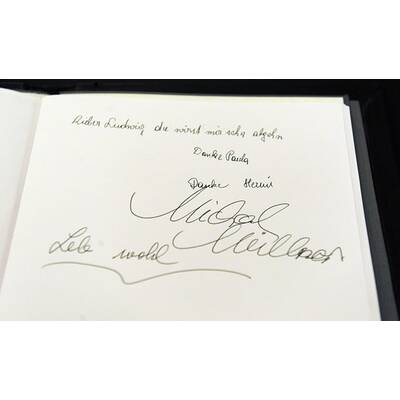 Lieber Ludwig du wirst mir sehr abgehn
Danke Paula
Danke
Michael
Lebe wohl